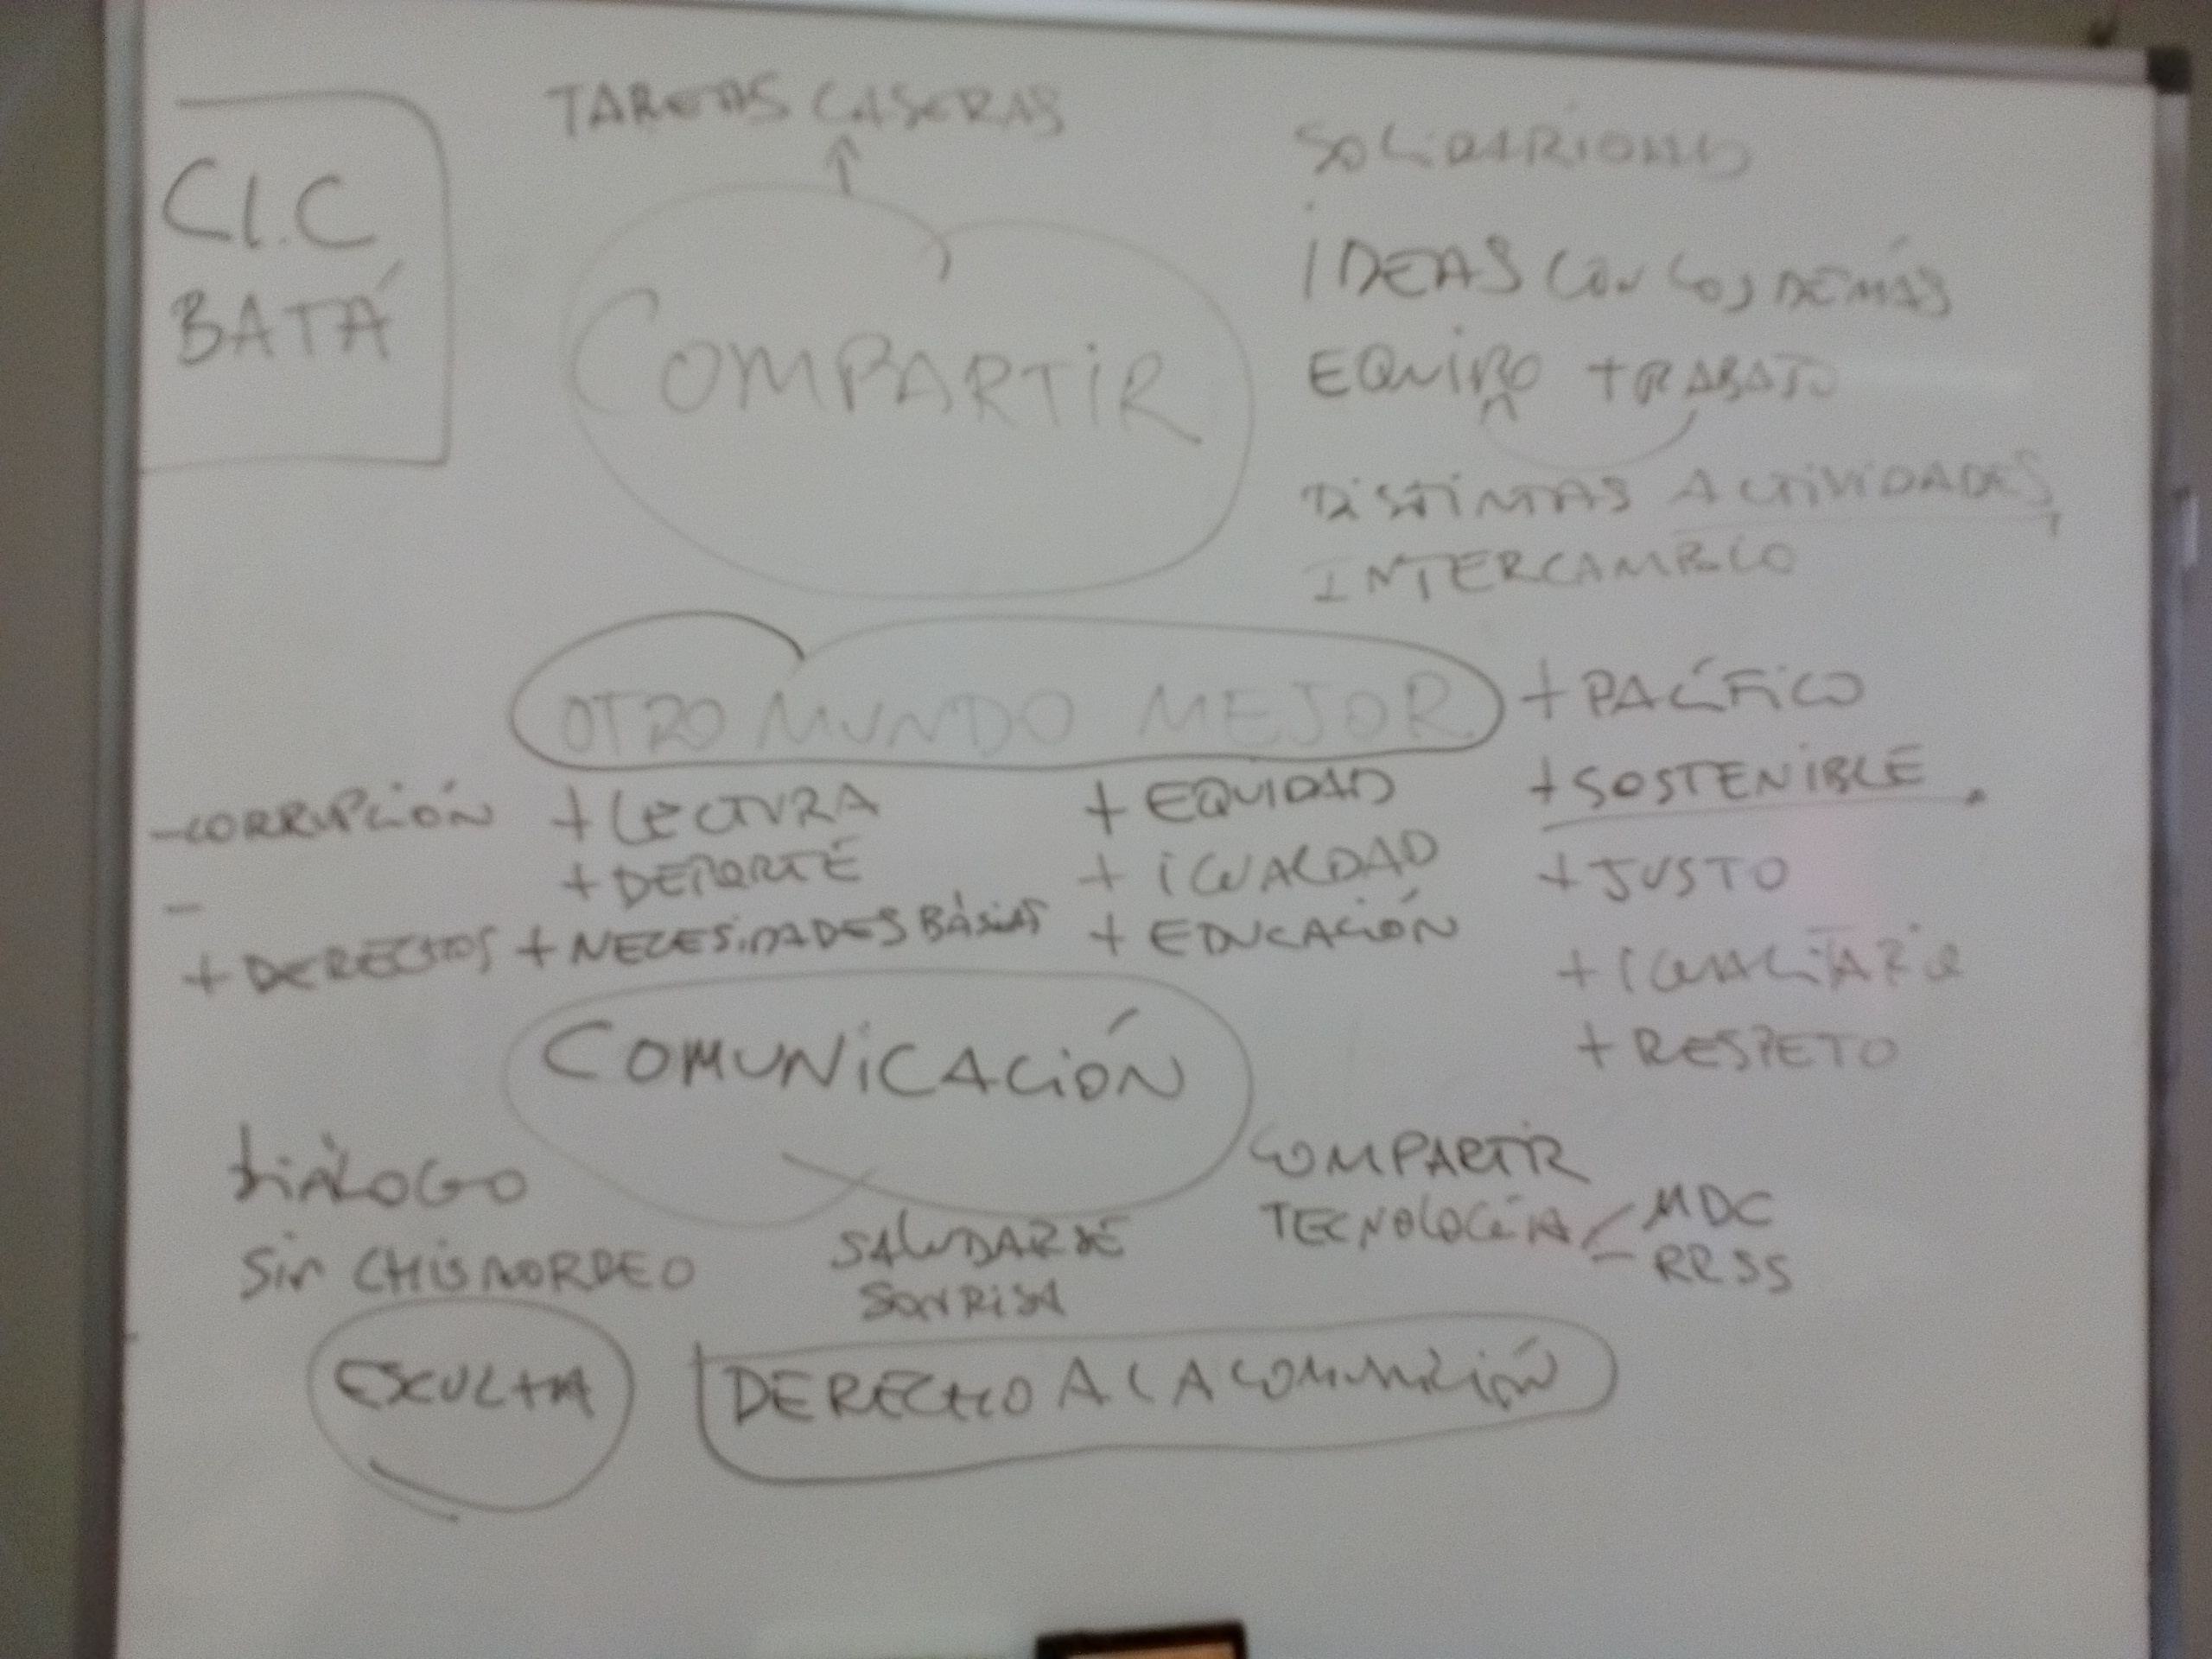 CI.C
BATÁ
TAREAS CASERAS
COMPARTIR
SOLIDARIDAD
IDEAS CON LOS DEMÁS
EQUIPO TRABAJO
DISTINTAS ACTIVIDADES
INTERCAMBIO
OTRO MUNDO MEJOR
+ PACÍFICO
+ SOSTENIBLE
+ JUSTO
+ IGUALITARIO
+ RESPETO
- CORRUPCIÓN + LECTURA + EQUIDAD
- + DEPORTE + IGUALDAD
+ DERECHOS + NECESIDADES BÁSICAS + EDUCACIÓN
COMUNICACIÓN
DIÁLOGO
SIN CHISMORREO
SALUDARSE
SONRISA
COMPARTIR
TECNOLOGÍA MDC
RRSS
ESCUCHA
DERECHO A LA COMUNICACIÓN